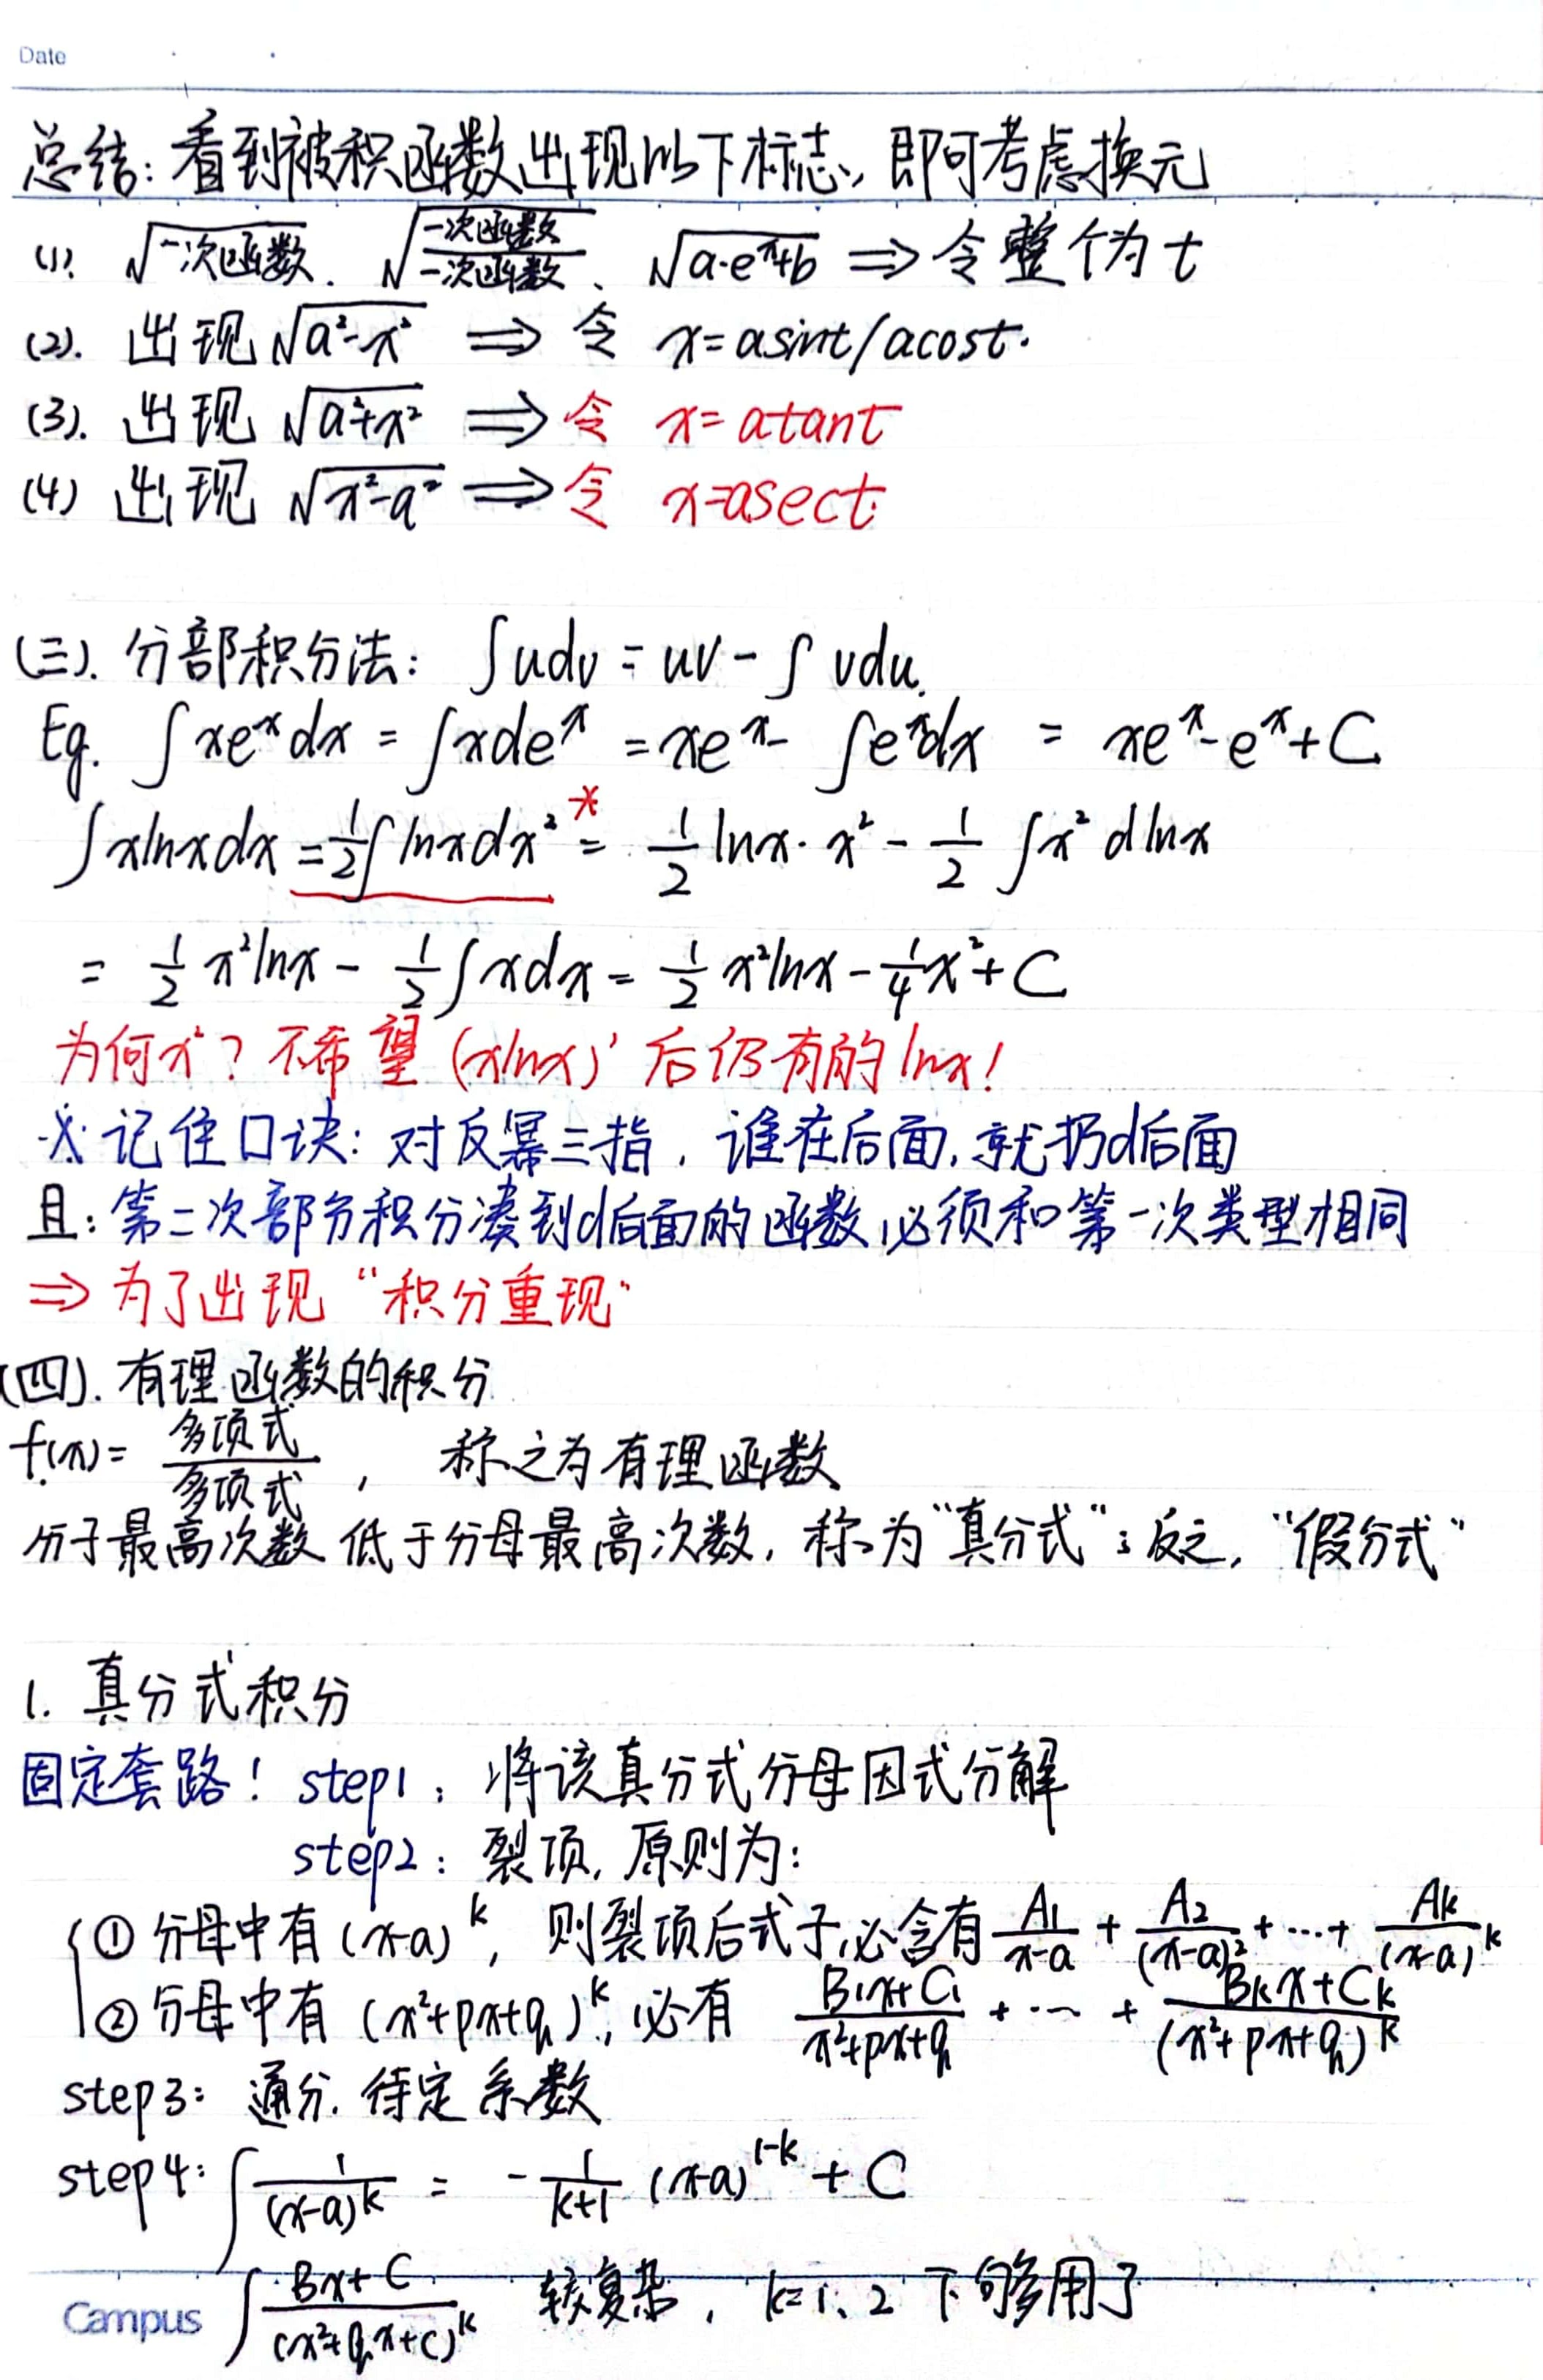 Date
总结：看到被积函数出现以下标志，即可考虑换元
(1). √一次函数、√(一次函数/一次函数)、√(a·eˣ+b) ⇒ 令整个为 t
(2). 出现 √(a²-x²) ⇒ 令 x=asint/acost.
(3). 出现 √(a²+x²) ⇒ 令 x=atant
(4) 出现 √(x²-a²) ⇒ 令 x=asect
(三). 分部积分法： ∫udv = uv - ∫vdu.
Eg. ∫xeˣdx = ∫xdeˣ = xeˣ - ∫eˣdx = xeˣ-eˣ+C
∫xlnxdx = 1/2∫lnxdx² *= 1/2 lnx·x² - 1/2 ∫x² dlnx
= 1/2 x²lnx - 1/2∫xdx = 1/2 x²lnx - 1/4x²+C
为何x²？不希望 (xlnx)' 后仍有的lnx!
※记住口诀：对反幂三指，谁在后面，就扔d后面
且：第二次部分积分凑到d后面的函数必须和第一次类型相同
⇒ 为了出现“积分重现”
(四). 有理函数的积分
f(x)= 多项式/多项式， 称之为有理函数
分子最高次数低于分母最高次数，称为“真分式”；反之，“假分式”
1. 真分式积分
固定套路！step1：将该真分式分母因式分解
step2：裂项，原则为：
① 分母中有 (x-a)ᵏ，则裂项后式子必含有 A₁/(x-a) + A₂/(x-a)² + ··· + Aₖ/(x-a)ᵏ
② 分母中有 (x²+px+q)ᵏ，必有 (B₁x+C₁)/(x²+px+q) + ··· + (Bₖx+Cₖ)/(x²+px+q)ᵏ
step3：通分，待定系数
step4：∫1/(x-a)ᵏ = -1/(k+1) (x-a)¹⁻ᵏ + C
∫(Bx+C)/(x²+qx+c)ᵏ 较复杂，k=1、2下够用了
Campus